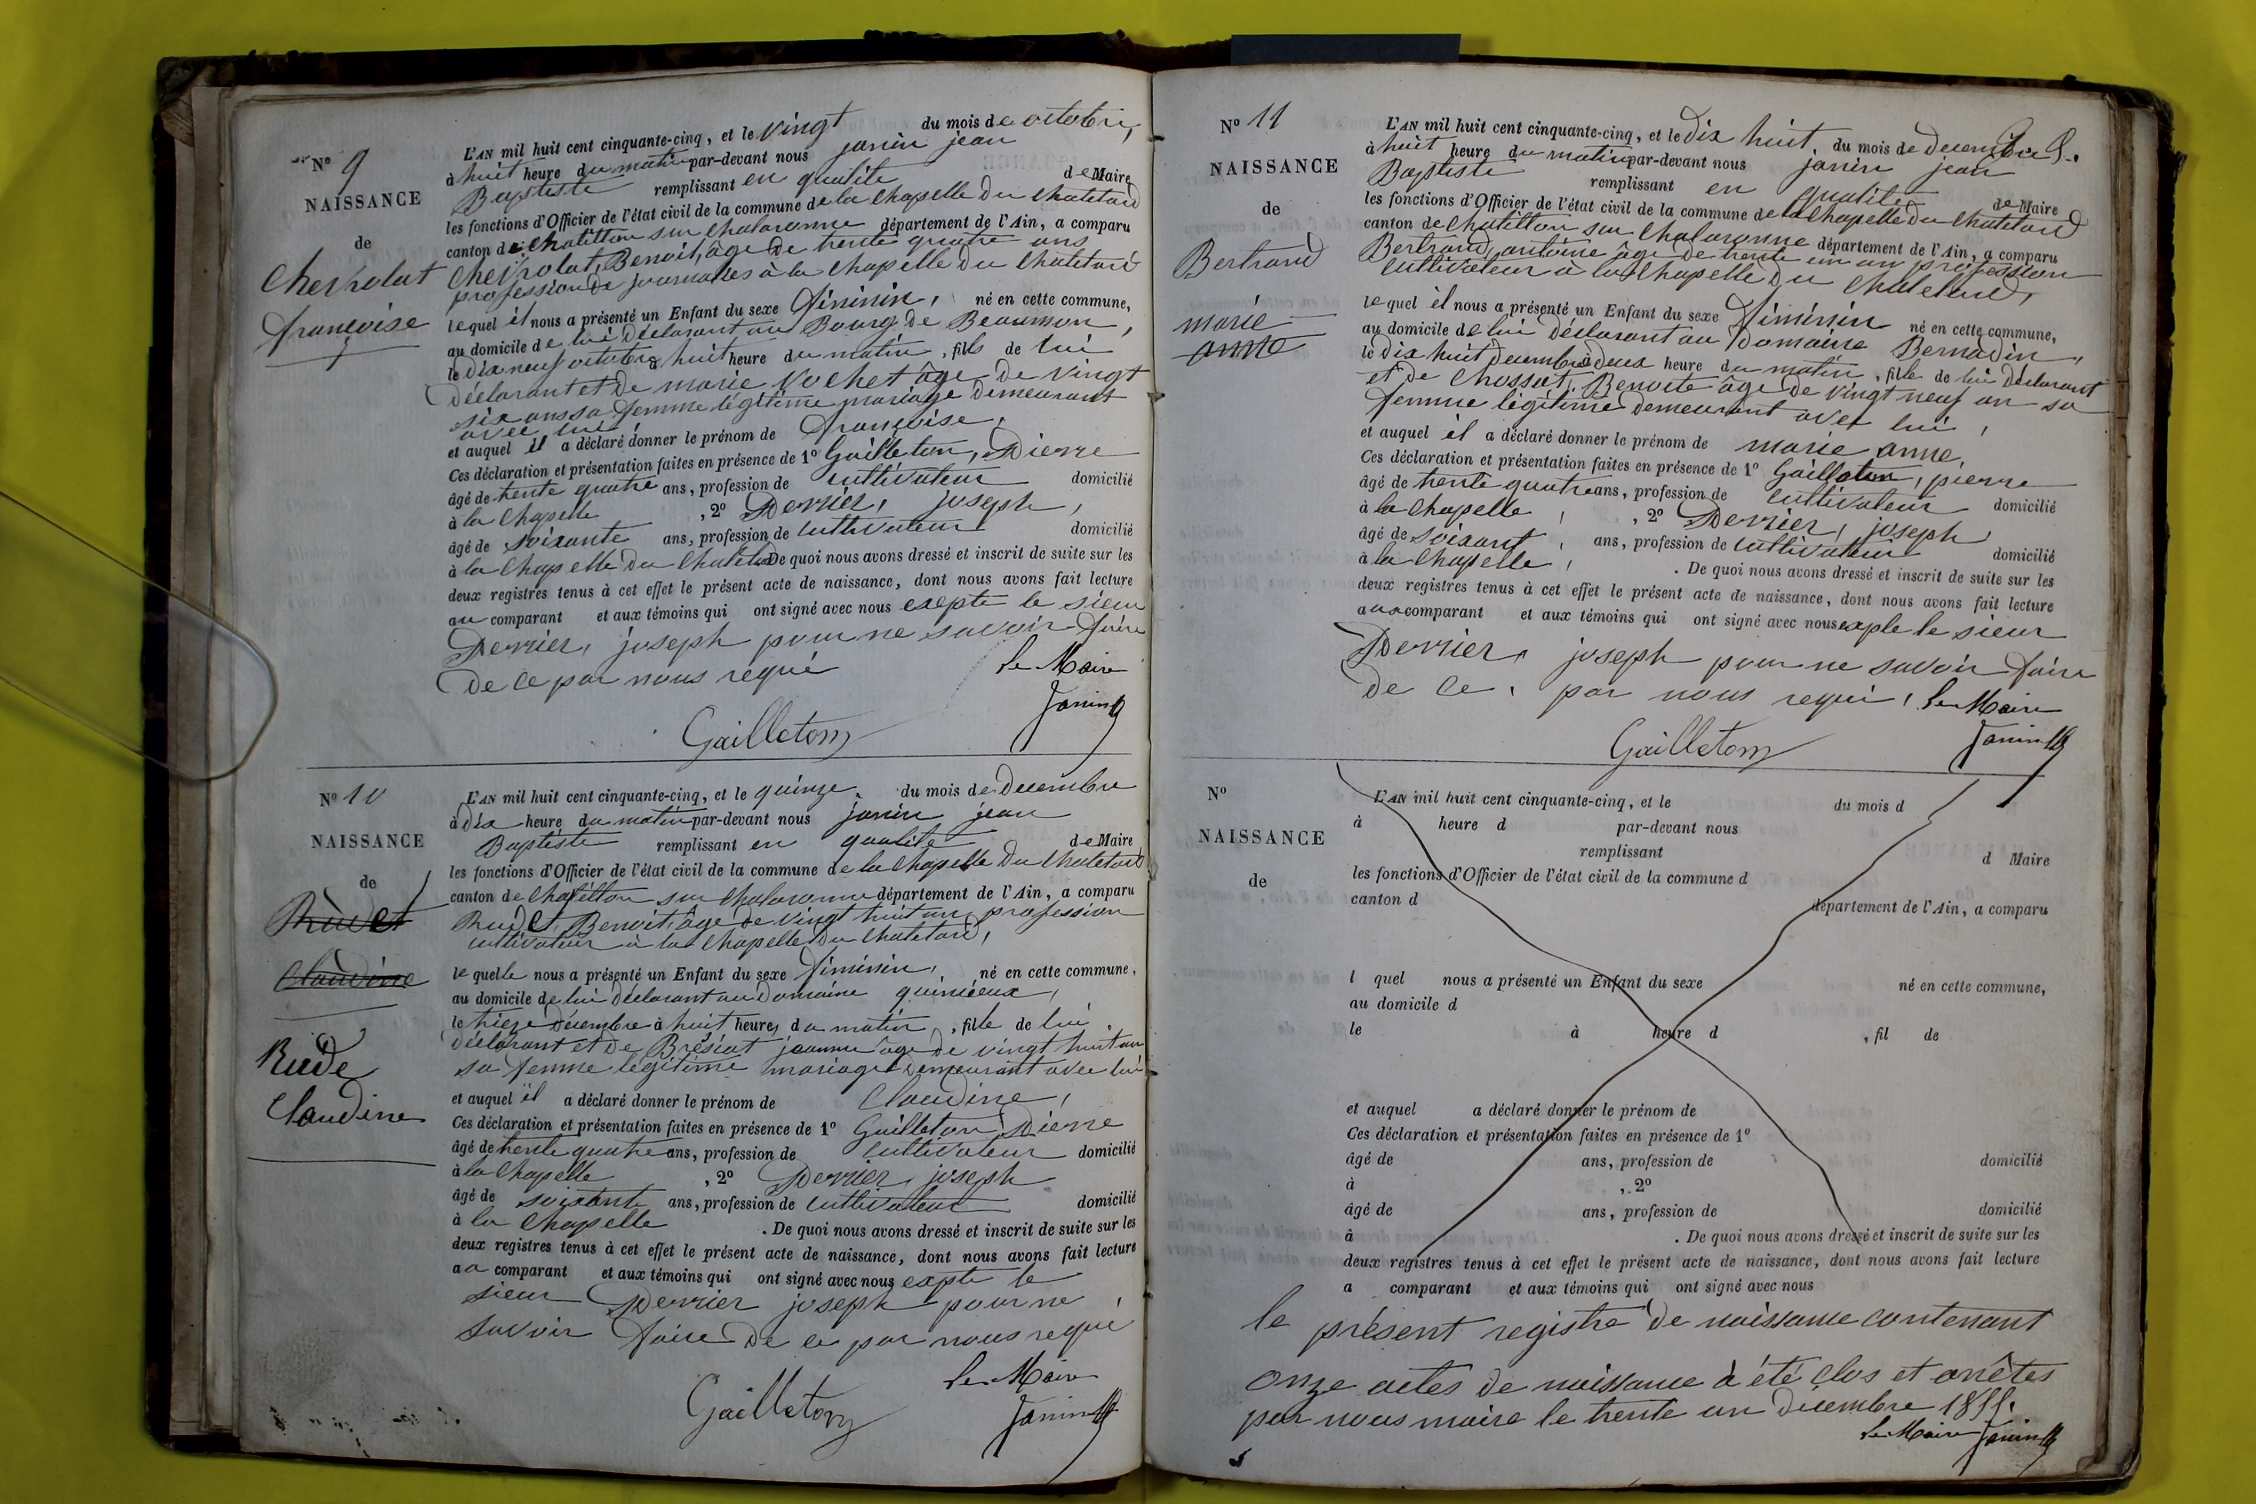 N° 9
NAISSANCE
de
Chevrolat
françoise
L'AN mil huit cent cinquante-cinq, et le vingt du mois de octobre,
à huit heure du matin par-devant nous janin jean
Baptiste remplissant en qualité de Maire
les fonctions d'Officier de l'état civil de la commune de la Chapelle du Chatelard
canton de Chatillon sur Chalaronne département de l'Ain, a comparu
Chevrolat, Benoit, âge de trente quatre ans
profession de journalies à la Chapelle du Chatelard
lequel il nous a présenté un Enfant du sexe féminin, né en cette commune,
au domicile de lui déclarant au Bourg de Beaumon,
le dix neuf octobre à huit heure du matin, fille de lui
déclarant et de marie Vochet âge de vingt
six ans sa femme légitime mariage demeurant
avec lui
et auquel il a déclaré donner le prénom de françoise,
Ces déclaration et présentation faites en présence de 1° Gailleton, Pierre
âgé de trente quatre ans, profession de cultivateur domicilié
à la Chapelle, 2° Perrier, joseph,
âgé de soixante ans, profession de cultivateur domicilié
à la Chapelle du Chatelard De quoi nous avons dressé et inscrit de suite sur les
deux registres tenus à cet effet le présent acte de naissance, dont nous avons fait lecture
au comparant et aux témoins qui ont signé avec nous exepte le sieur
Perrier, joseph pour ne savoir faire
de ce par nous requi
Le Maire
Gailleton Janin
N° 10
NAISSANCE
de
Rudet
Claudine
Rude
Claudine
L'AN mil huit cent cinquante-cinq, et le quinze du mois de Decembre
à dix heure du matin par-devant nous janin jean
Baptiste remplissant en qualité de Maire
les fonctions d'Officier de l'état civil de la commune de la Chapelle du Chatelard
canton de Chatillon sur Chalaronne département de l'Ain, a comparu
Rude, Benoit, âge de vingt huit an profession
cultivateur à la Chapelle du Chatelard,
lequelle nous a présenté un Enfant du sexe féminin, né en cette commune,
au domicile de lui déclarant au Domaine quinieux,
le treize Décembre à huit heures du matin, fille de lui
déclarant et de Brésiat jeanne âge de vingt huit an
sa femme légitime mariage demeurant avec lui
et auquel il a déclaré donner le prénom de Claudine,
Ces déclaration et présentation faites en présence de 1° Gailleton Pierre
âgé de trente quatre ans, profession de cultivateur domicilié
à la Chapelle, 2° Perrier, joseph
âgé de soixante ans, profession de cultivateur domicilié
à la Chapelle. De quoi nous avons dressé et inscrit de suite sur les
deux registres tenus à cet effet le présent acte de naissance, dont nous avons fait lecture
au comparant et aux témoins qui ont signé avec nous expte le
sieur Perrier joseph pour ne
savoir faire de ce par nous requi
Le Maire
Gailleton Janin
N° 11
NAISSANCE
de
Bertrand
marie
anne
L'AN mil huit cent cinquante-cinq, et le Dix huit du mois de Decembre
à huit heure du matin par-devant nous janin jean
Baptiste remplissant en qualité de Maire
les fonctions d'Officier de l'état civil de la commune de la Chapelle du Chatelard
canton de Chatillon sur Chalaronne département de l'Ain, a comparu
Bertrand, antoine âge de trente un an profession
cultivateur à la Chapelle du Chatelard,
lequel il nous a présenté un Enfant du sexe féminin né en cette commune,
au domicile de lui déclarant au Domaine Bernadin,
le dix huit Decembre à deux heure du matin, fille de lui déclarant
et de Chossat, Benoite âge de vingt neuf an sa
femme légitime demeurant avec lui,
et auquel il a déclaré donner le prénom de marie anne,
Ces déclaration et présentation faites en présence de 1° Gailleton, pierre
âgé de trente quatre ans, profession de cultivateur domicilié
à la Chapelle, 2° Perrier, joseph,
âgé de soixant, ans, profession de cultivateur domicilié
à la Chapelle,. De quoi nous avons dressé et inscrit de suite sur les
deux registres tenus à cet effet le présent acte de naissance, dont nous avons fait lecture
aux comparant et aux témoins qui ont signé avec nous exple le sieur
Perrier, joseph pour ne savoir faire
de ce, par nous requi, Le Maire
Gailleton Janin
N°
NAISSANCE
de
L'AN mil huit cent cinquante-cinq, et le du mois d
à heure d par-devant nous
remplissant d Maire
les fonctions d'Officier de l'état civil de la commune d
canton d département de l'Ain, a comparu
l quel nous a présenté un Enfant du sexe né en cette commune,
au domicile d
le à heure d, fil de
et auquel a déclaré donner le prénom de
Ces déclaration et présentation faites en présence de 1°
âgé de ans, profession de domicilié
à, 2°
âgé de ans, profession de domicilié
à. De quoi nous avons dressé et inscrit de suite sur les
deux registres tenus à cet effet le présent acte de naissance, dont nous avons fait lecture
a comparant et aux témoins qui ont signé avec nous
le présent registre de naissance contenant
onze actes de naissance à été clos et arrêtes
par nous maire le trente un décembre 1855.
Le Maire Janin